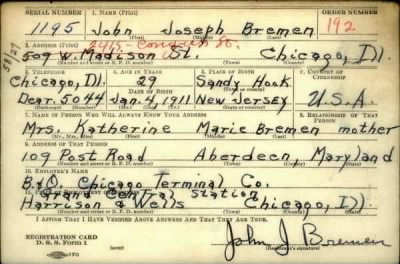 SERIAL NUMBER 1. NAME (Print) ORDER NUMBER
1195 John Joseph Bremen 192
(First) (Middle) (Last)
2. ADDRESS (Print) 2417 St.
509 W Madison St. Chicago, Ill.
(Number and street or R. F. D. number) (Town) (County) (State)
3. TELEPHONE 4. AGE IN YEARS 5. PLACE OF BIRTH 6. COUNTRY OF CITIZENSHIP
Chicago, Ill. 29 Sandy Hook
DATE OF BIRTH U.S.A.
Dear. 5044 Jan. 4, 1911 New Jersey
7. NAME OF PERSON WHO WILL ALWAYS KNOW YOUR ADDRESS 8. RELATIONSHIP OF THAT PERSON
Mrs. Katherine Marie Bremen mother
(Mr., Mrs., Miss) (First) (Middle) (Last)
9. ADDRESS OF THAT PERSON
109 Post Road Aberdeen, Maryland
(Number and street or R. F. D. number) (Town) (County) (State)
10. EMPLOYER'S NAME
B&O Chicago Terminal Co.
Grand Central Station
Harrison & Wells Chicago, Ill
(Number and street or R. F. D. number) (Town) (County) (State)
I AFFIRM THAT I HAVE VERIFIED ABOVE ANSWERS AND THAT THEY ARE TRUE.
REGISTRATION CARD
D. S. S. Form 1 John J. Bremen
(over) (Registrant's signature)